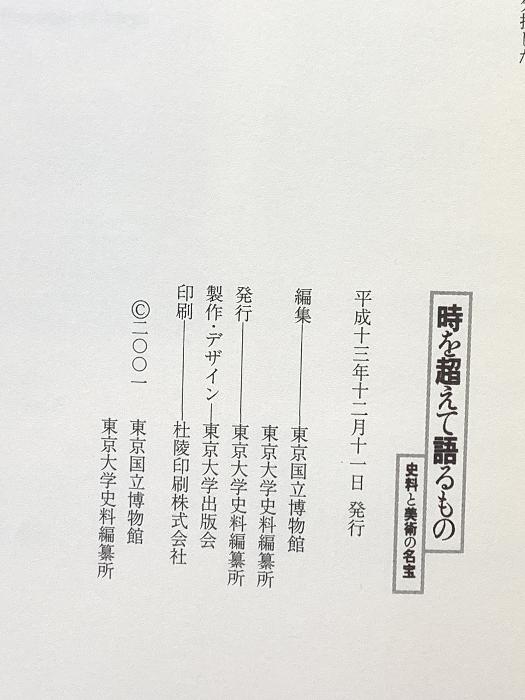 時を超えて語るもの
史料と美術の名宝
平成十三年十二月十一日 発行
編集――東京国立博物館
東京大学史料編纂所
発行――東京大学史料編纂所
製作・デザイン―東京大学出版会
印刷――杜陵印刷株式会社
©二〇〇一 東京国立博物館
東京大学史料編纂所